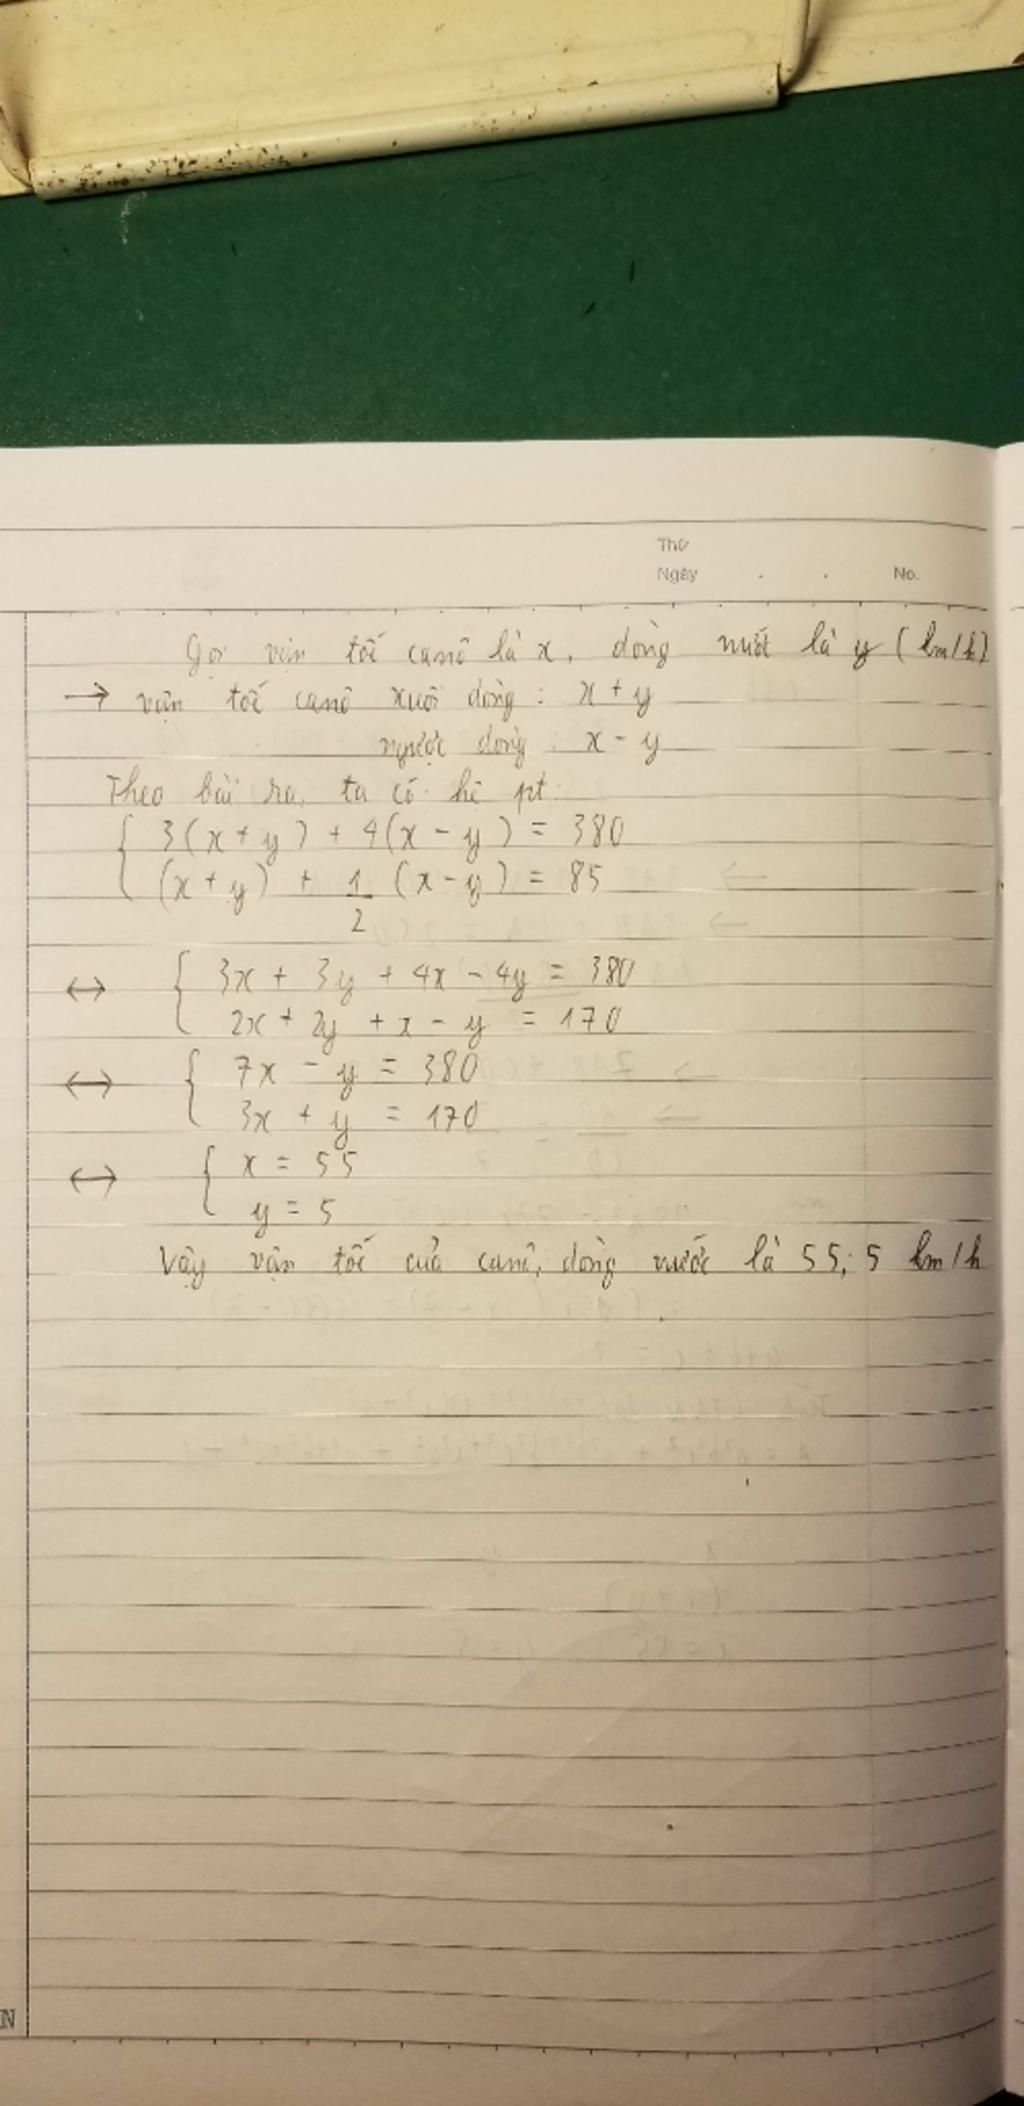 Thứ
Ngày . . No.
Gọi vận tốc canô là x, dòng nước là y (km/h)
→ vận tốc canô xuôi dòng : x + y
ngược dòng : x - y
Theo bài ra, ta có hệ pt:
{ 3(x + y) + 4(x - y) = 380
(x + y) + 1/2 (x - y) = 85
↔ { 3x + 3y + 4x - 4y = 380
2x + 2y + x - y = 170
↔ { 7x - y = 380
3x + y = 170
↔ { x = 55
y = 5
Vậy vận tốc của canô, dòng nước là 55; 5 km/h
N